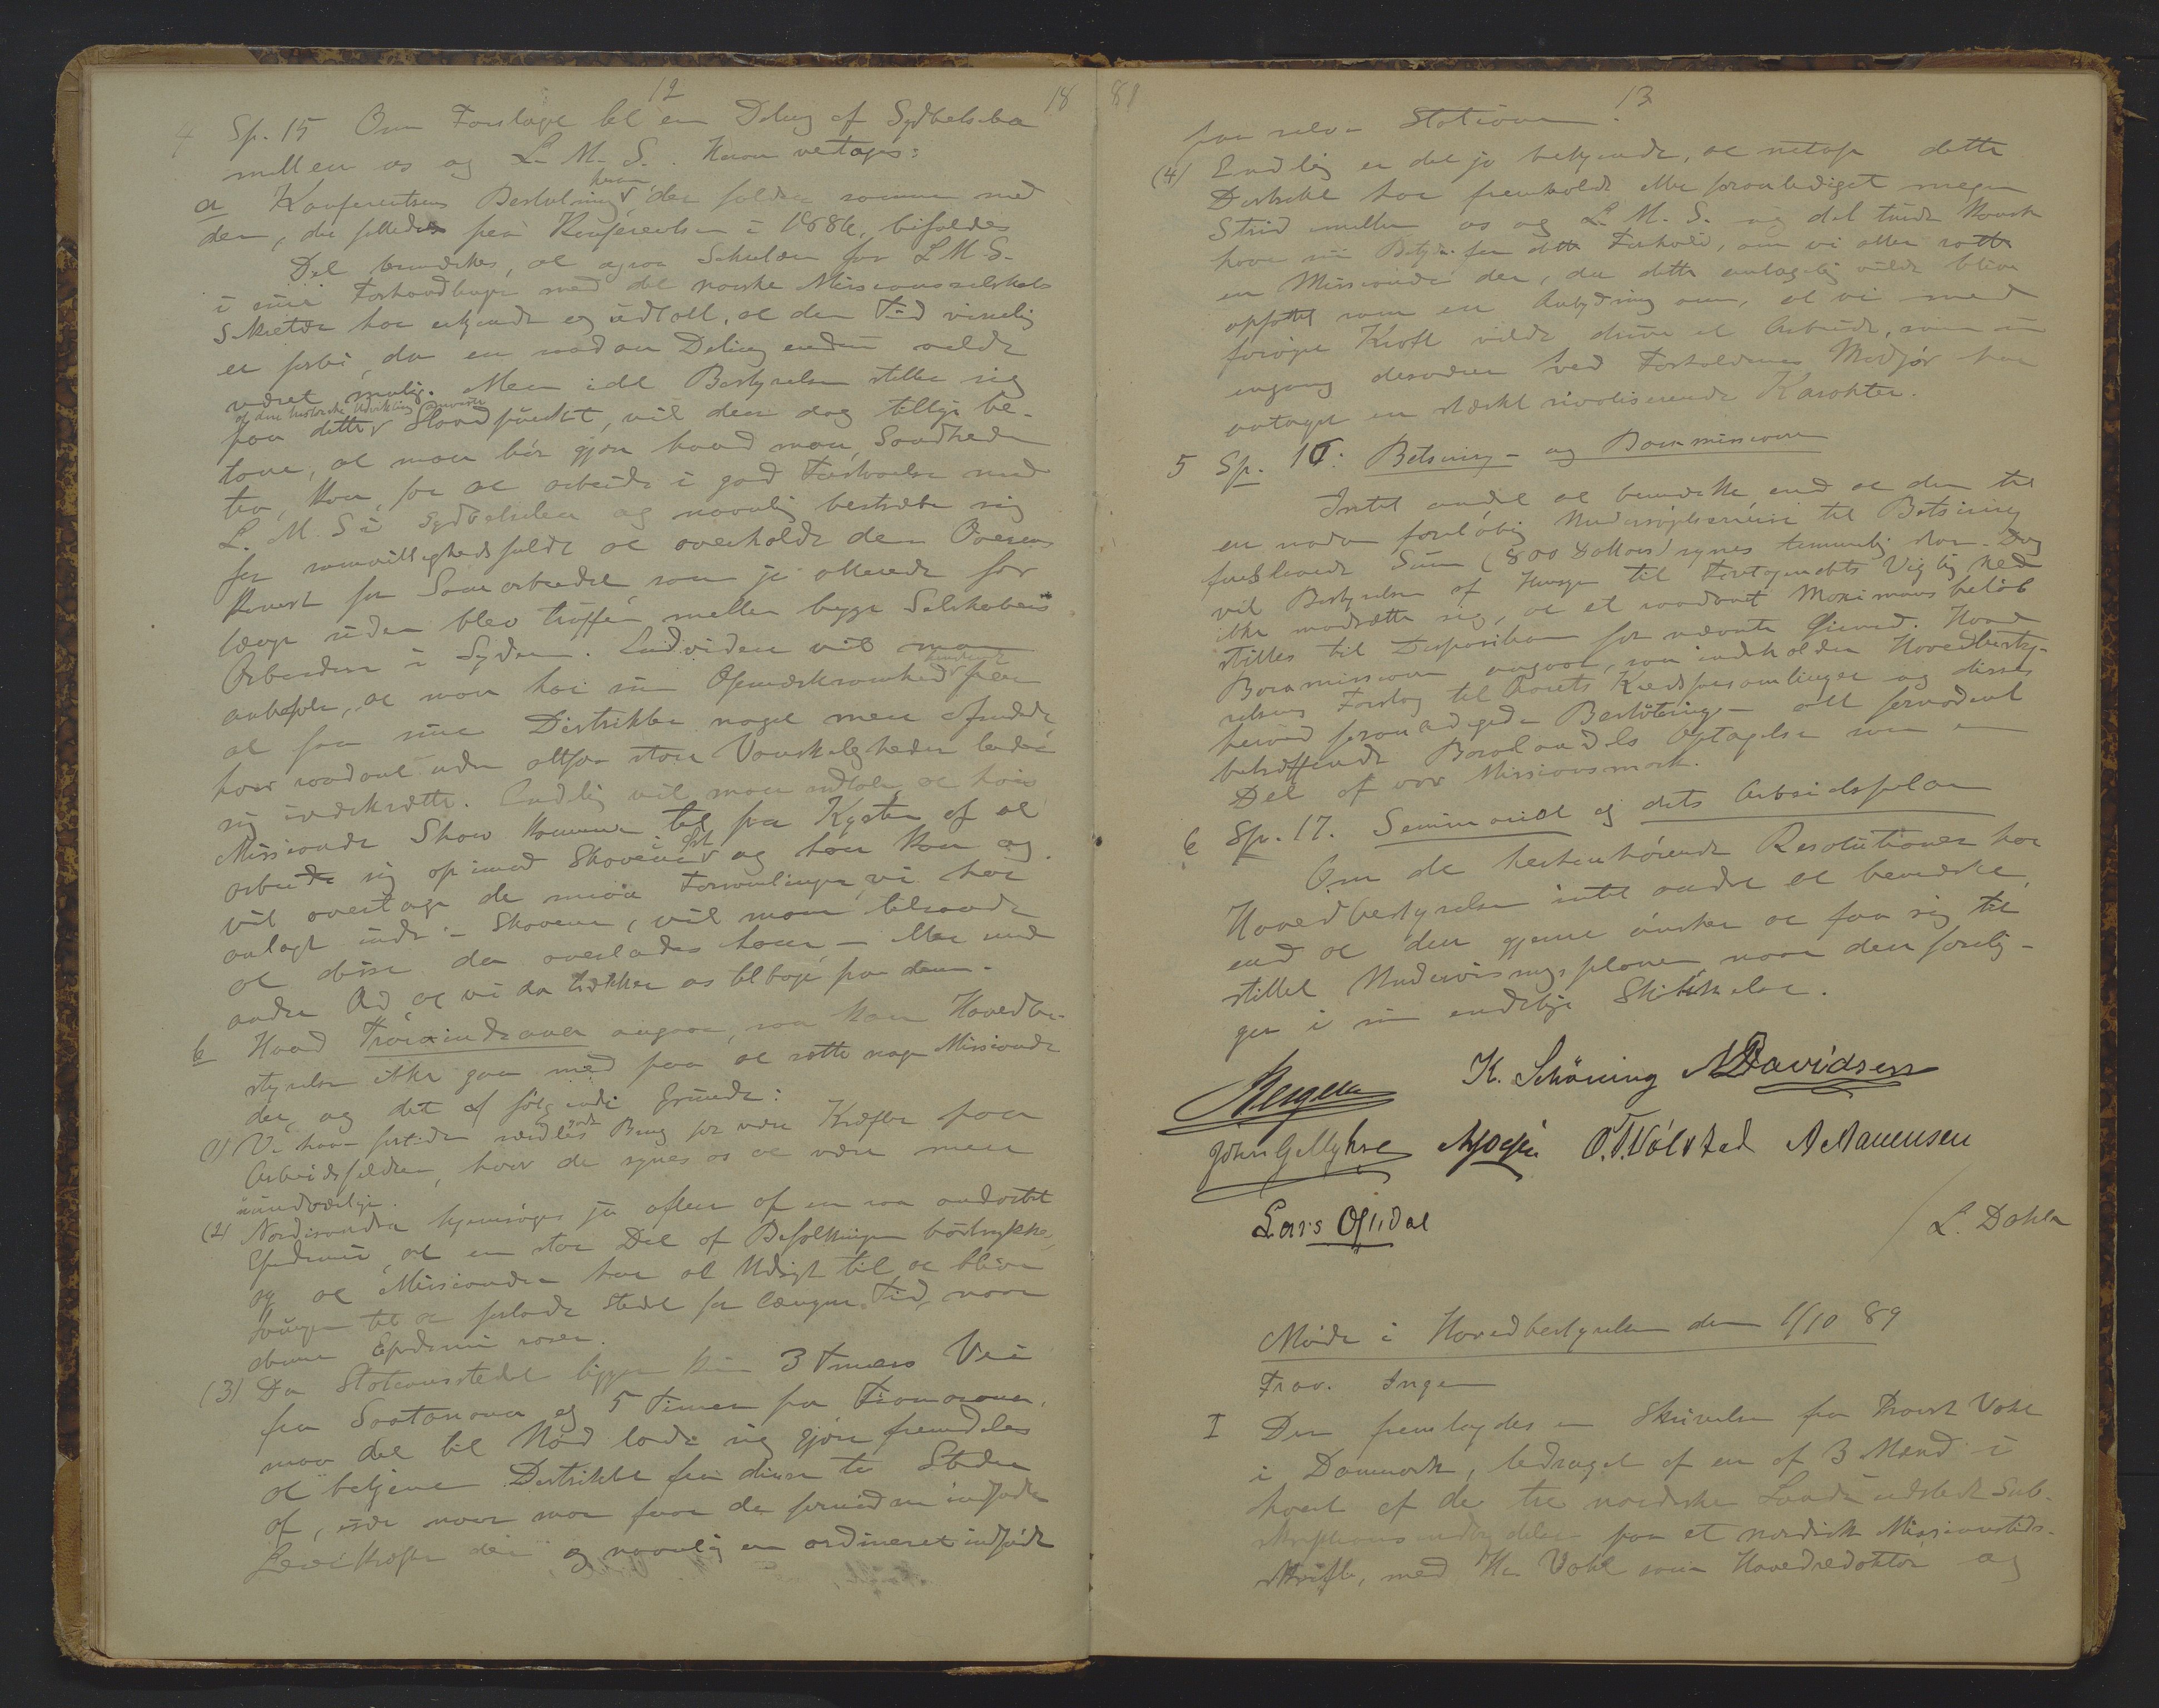 12
18
4 Sp. 15 Om Forslaget til en Deling af Sydbetsileo
mellem os og L. M. S. Herom vedtoges:
a Konferentsens Beslutning herom, der falder sammen med
den, der fattedes paa Konferentsen i 1886, bifaldes
Det bemærkes, at ogsaa Sekretæren for L M S.
i sine Forhandlinger med det norske Missionsselskabs
Sekretær har erkjendt og udtalt, at den Tid visselig
er forbi, da en saadan Deling endnu vilde
været mulig. Men idet Bestyrelsen stiller sig
paa dette af den historiske Udvikling anviste Standpunkt, vil den dog tillige be-
tone, at man bør gjøre hvad man
kan, for at arbeide i god Forstaaelse med
L. M. S. i Sydbetsileo og navnlig bestræbe sig
for samvittighedsfuldt at overholde den Overens-
komst for Samarbeidet, som jo allerede for
længe siden blev truffen mellem begge Selskabers
Arbeidere i Syden. Endvidere vil man
anbefale, at man har sin Opmærksomhed henvendt paa
at faa sine Distrikter noget mere afrundede,
hvor saadant uden altfor store Vanskeligheder lader
sig iværksætte. Endelig vil man udtale, at hvis
Missionær Shaw kommer til paa Kysten af at
arbeide sig op imod Skoven og han kan og
vil overtage de smaa Forsamlinger, vi har
anlagt inde i Skoven, vil man tilraade
at disse da overlades ham
og vi da trækker os tilbage fra dem.
b Hvad Tsaraindrana angaar, saa kan Hovedbe-
styrelsen ikke gaa med paa at sætte nogen Missionær
der, og det af følgende Grunde:
(1) Vi har fortiden Brug for vore Kræfter paa
Arbeidsfelter, hvor de synes os at være mere
uundværlige.
(2) Nordisandra hjemsøges jo ofte af en saa ondartet
Epidemi, at en stor Del af Befolkningen bortrykkes,
og at Missionæren har al Udsigt til at blive
tvungen til at forlade Stedet for længere Tid, naar
denne Epidemi raser.
(3) Da Stationsstedet ligger kun 3 Timers Vei
fra Soatanana og 5 Timer fra Fianarana,
maa det til Nød lade sig gjøre fremdeles
at betjene Distriktet fra disse to Steder
af, især naar man faar de fornødne indfødte
Lærerkræfter der og navnlig en ordineret indfødt
81
13
paa selve Stationen.
(4) Endelig er det jo bekjendt, at netop dette
Distrikt har fremkaldt eller foranlediget megen
Strid mellem os og L. M. S. og det turde
have sin Betyd. for dette Forhold, om vi atter satte
en Missionær der, da dette antagelig vilde blive
opfattet som en Antydning om, at vi med
forøget Kraft vilde drive et Arbeide, som nu
engang desværre ved Forholdenes Medfør har
antaget en stærkt rivaliserende Karakter.
5 Sp. 16. Betsiriry- og Baramissionen
Intet andet at bemærke, end at den til
en nødv. foreløbig Undersøgelsesreise til Betsiriry
foreslaaede Sum (800 Dollars) synes temmelig stor. Dog
vil Bestyrelsen af Hensyn til Foretagendets Vigtighed
ikke modsætte sig, at et saadant Maximumsbeløb
stilles til Disposition for nævnte Øiemed. Hvad
Baramissionen angaar, saa indeholder Hovedbesty-
relsens Forslag til Aarets Kredsforsamlinger og disses
herved foranledigede Beslutninger alt fornødent
betræffende Baralandets Optagelse som en
Del af vor Missionsmark.
6 Sp. 17. Seminariet og dets Arbeidsplan
Om de herhenhørende Resolutioner har
Hovedbestyrelsen intet andet at bemærke,
end at den gjerne ønsker at faa sig til-
stillet Undervisningsplanen, naar den forelig-
ger i sin endelige Skikkelse.
K. Schöning Davidsen
O. T. Vølstad A Aanensen
Lars Oftedal
L. Dahle
Møde i Hovedbestyrelsen den 1/10 89
Frav. Ingen
I Der fremlagdes en Skrivelse fra Provst Vahl
i Danmark, ledsaget af en af 3 Mænd i
hvert af de tre nordiske Lande udstedt Sub-
skriptionsindbydelse paa et nordisk Missionstids-
skrift, med Hr. Vahl som Hovedredaktør og